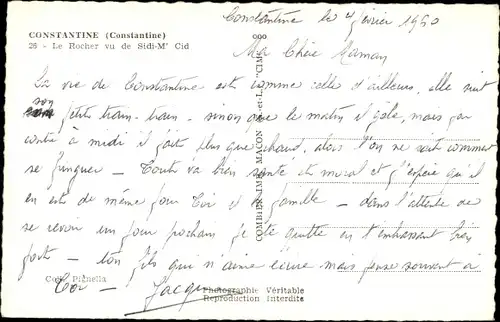 CONSTANTINE (Constantine)
26 - Le Rocher vu de Sidi-M' Cid
Constantine le 4 février 1950
Ma Chère Maman
La vie de Constantine est comme celle d'ailleurs, elle suit
son petit train-train, sinon que le matin il gèle, mais par
contre à midi il fait plus que chaud, alors l'on ne sait comment
se fringuer - Tout va bien santé et moral et j'espère qu'il
en est de même pour toi et la famille - dans l'attente de
se revoir un jour prochain je te quitte en t'embrassant bien
fort - ton fils qui n'aime écrire mais pense souvent à
toi - Jacques
COMBIER IMP. MACON (S.-et-L.) "CIM"
Coll. Pignella
Photographie Véritable
Reproduction Interdite